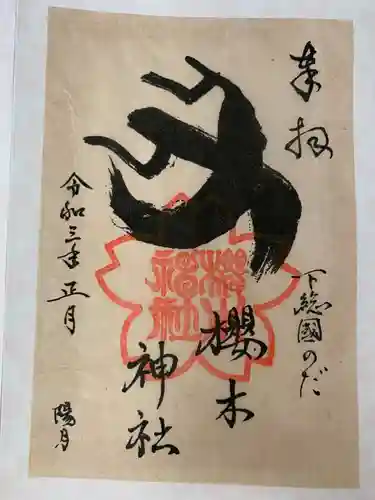 奉拝
下総國のだ
櫻木
神社
丑
令和三年正月
陽月
櫻木
神社